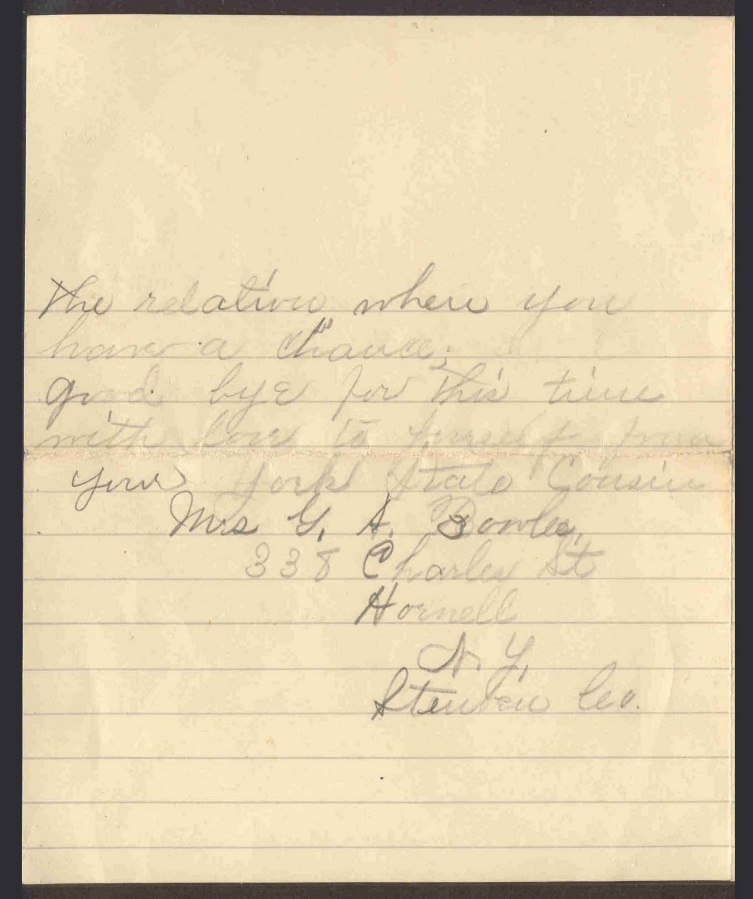 the relation where you
have a chance.
good bye for this time
with love to yourself from
your York State Cousin
Mrs G. A. Bowles,
338 Charles St
Hornell
N. Y.
Steuben Co.